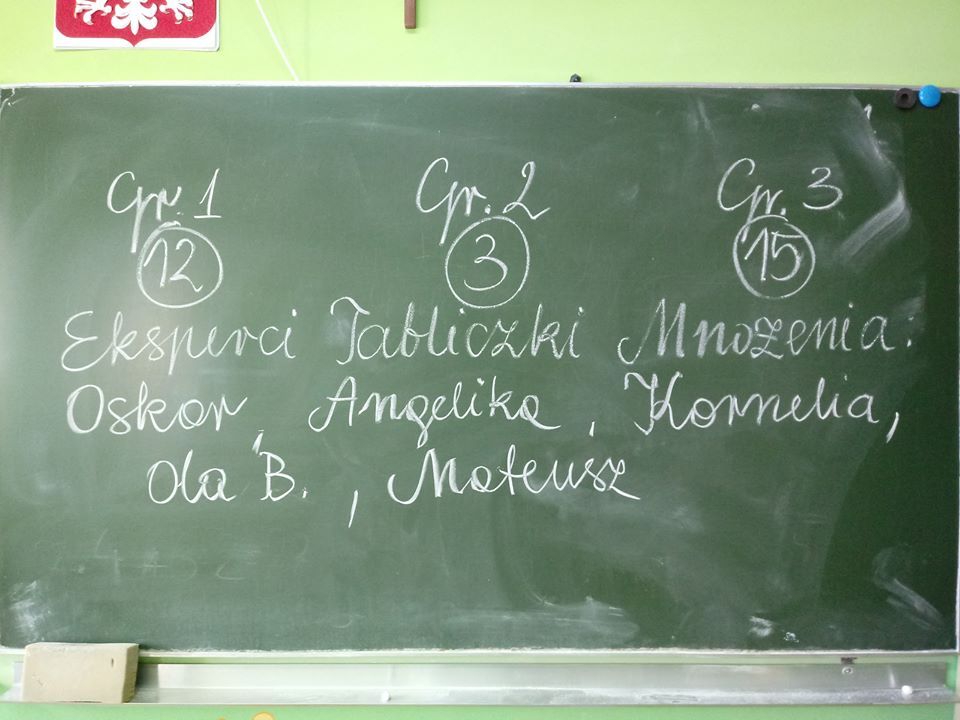 Gr. 1 Gr. 2 Gr. 3
12 3 15
Eksperci Tabliczki Mnożenia:
Oskar, Angelika, Kornelia,
Ola B., Mateusz